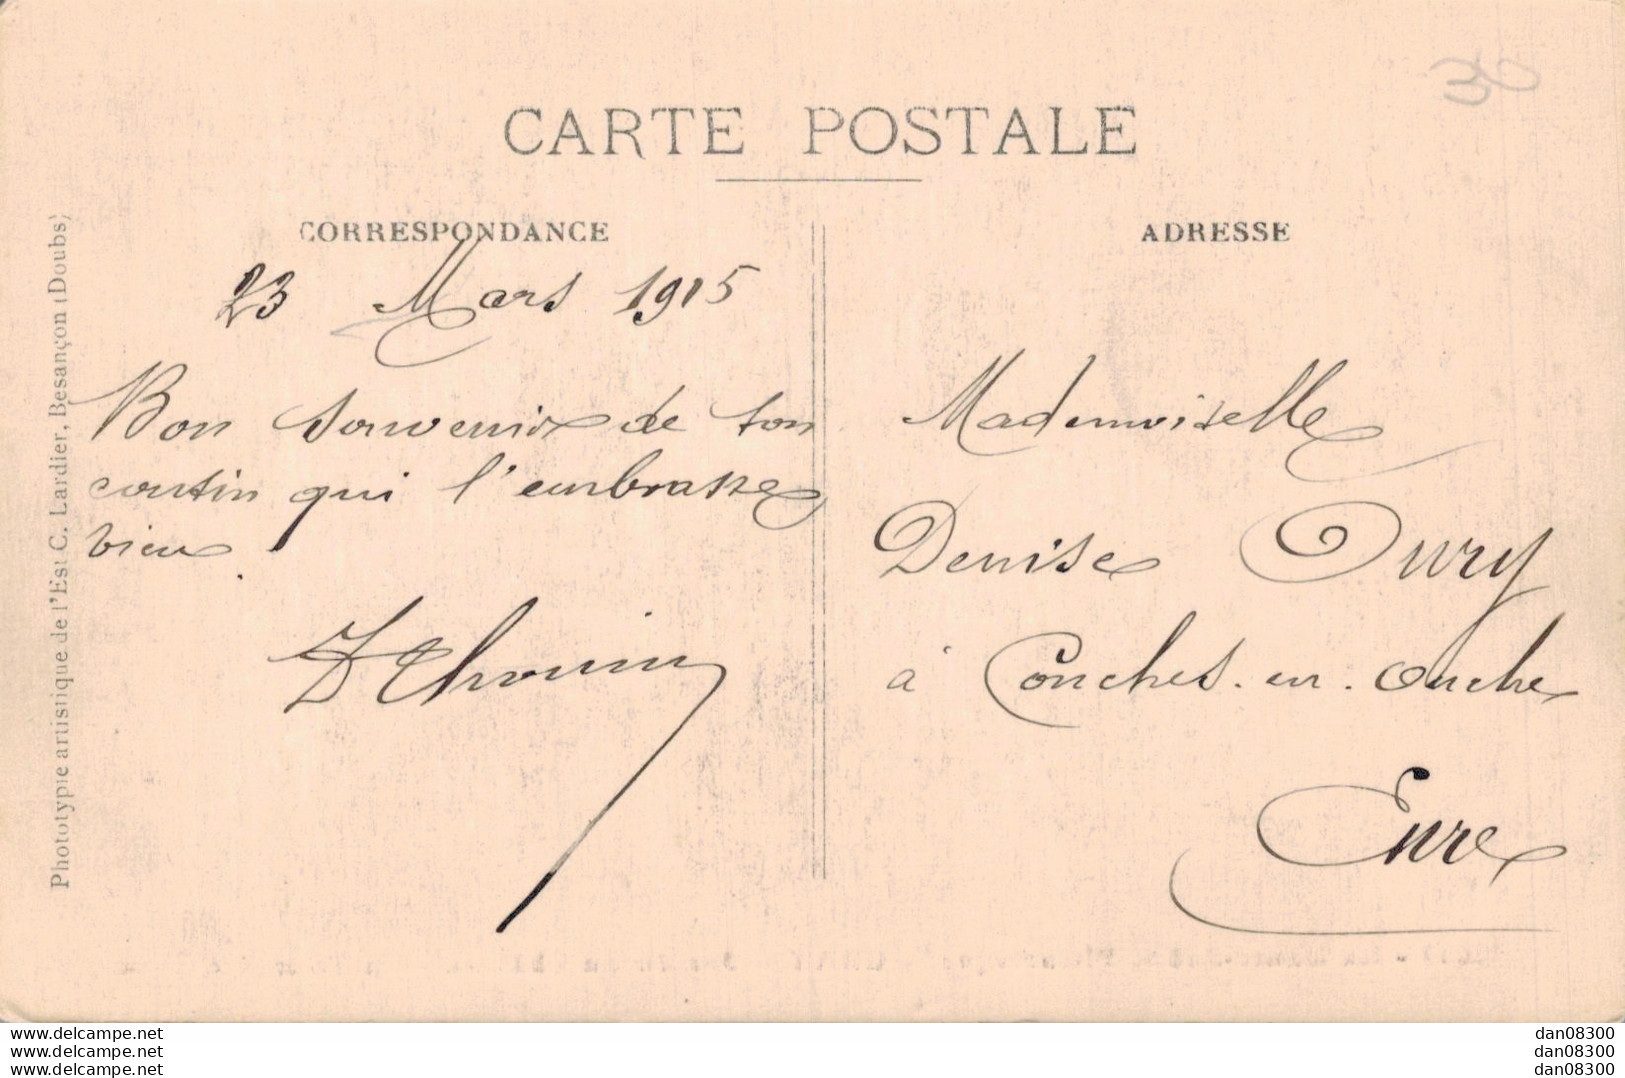 30
CARTE POSTALE
CORRESPONDANCE
ADRESSE
23 Mars 1915
Bon souvenir de ton
cousin qui t'embrasse
bien.
Mademoiselle
Denise Oury
à Conches-en-Ouche
Eure
Phototypie artistique de l'Est C. Lardier, Besançon (Doubs)
www.delcampe.net
www.delcampe.net
www.delcampe.net
dan08300
dan08300
dan08300